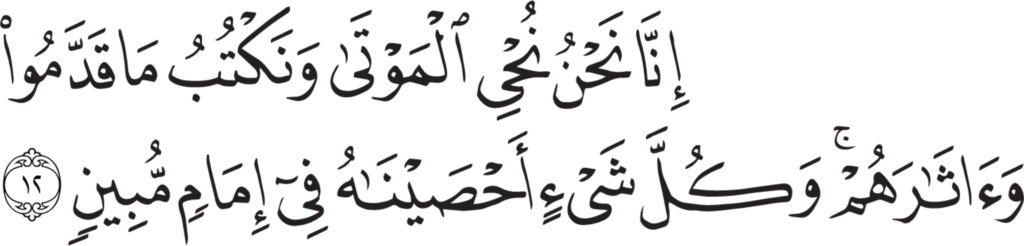 إِنَّا نَحْنُ نُحْيِ ٱلْمَوْتَىٰ وَنَكْتُبُ مَا قَدَّمُوا۟
وَءَاثَـٰرَهُمْ ۚ وَكُلَّ شَىْءٍ أَحْصَيْنَـٰهُ فِىٓ إِمَامٍ مُّبِينٍ ١٢